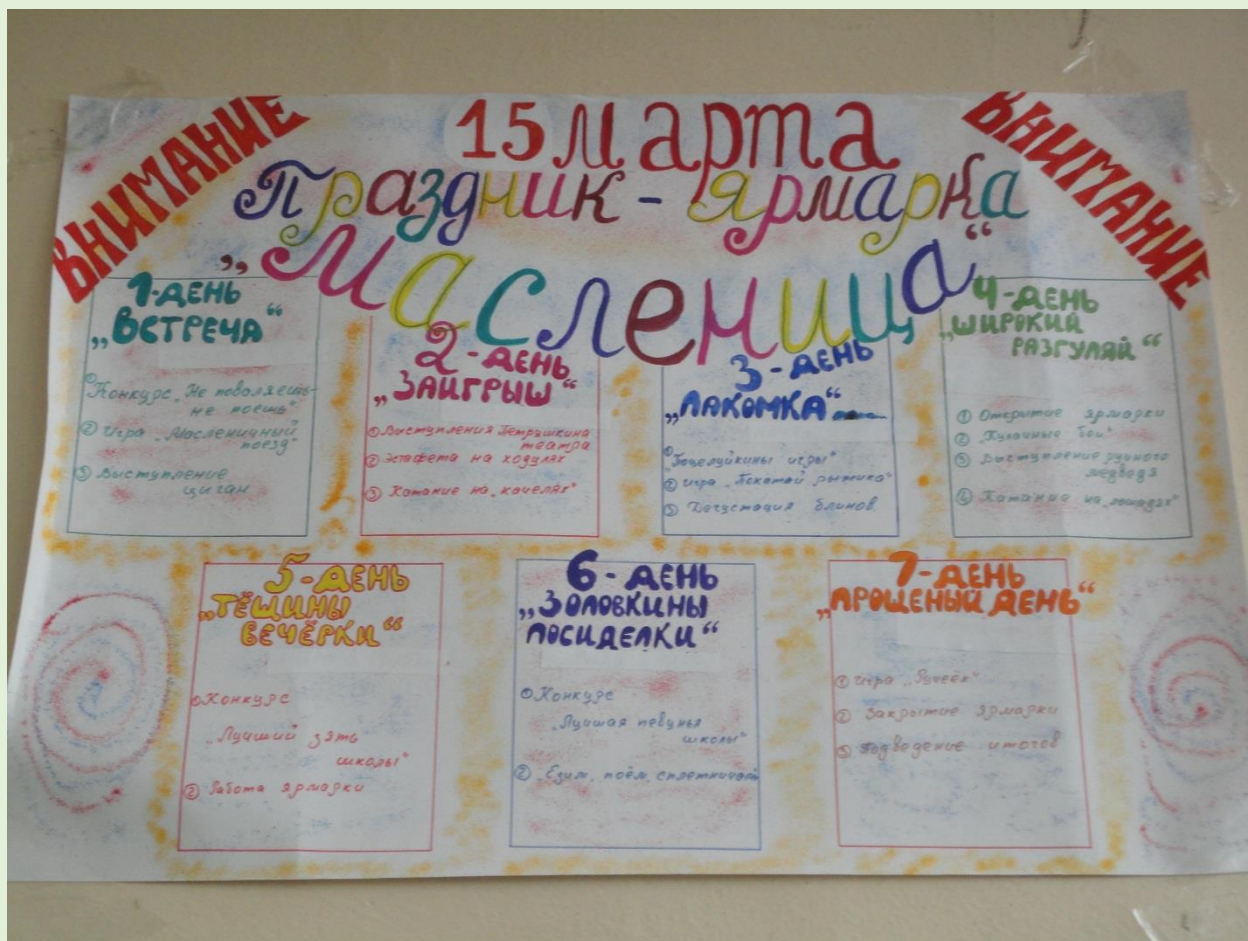 ВНИМАНИЕ
15 марта
ВНИМАНИЕ
Праздник - ярмарка
„Масленица“
1-ДЕНЬ
„ВСТРЕЧА“
① Конкурс „Не поваляешь-
не поешь“
② Игра „Масленичный
поезд“
③ Выступление
цыган
2-ДЕНЬ
„ЗАИГРЫШ“
① Выступления Петрушкина
театра
② Эстафета на ходулях
③ Катание на „качелях“
3-ДЕНЬ
„ЛАКОМКА“
① „Поцелуйкины игры“
② Игра
③ Дегустация блинов
4-ДЕНЬ
„ШИРОКИЙ
РАЗГУЛЯЙ“
① Открытие ярмарки
② „Кулачные бои“
③ Выступление ручного
медведя
④ Катание на „лошадях“
5-ДЕНЬ
„ТЁЩИНЫ
ВЕЧЁРКИ“
① Конкурс
„Лучший зять
школы“
② Работа ярмарки
6-ДЕНЬ
„ЗОЛОВКИНЫ
ПОСИДЕЛКИ“
① Конкурс
„Лучшая певунья
школы“
② „Едим, поём, сплетничаем
7-ДЕНЬ
„ПРОЩЕНЫЙ ДЕНЬ“
① Игра „Ручеек“
② Закрытие ярмарки
③ Подведение итогов